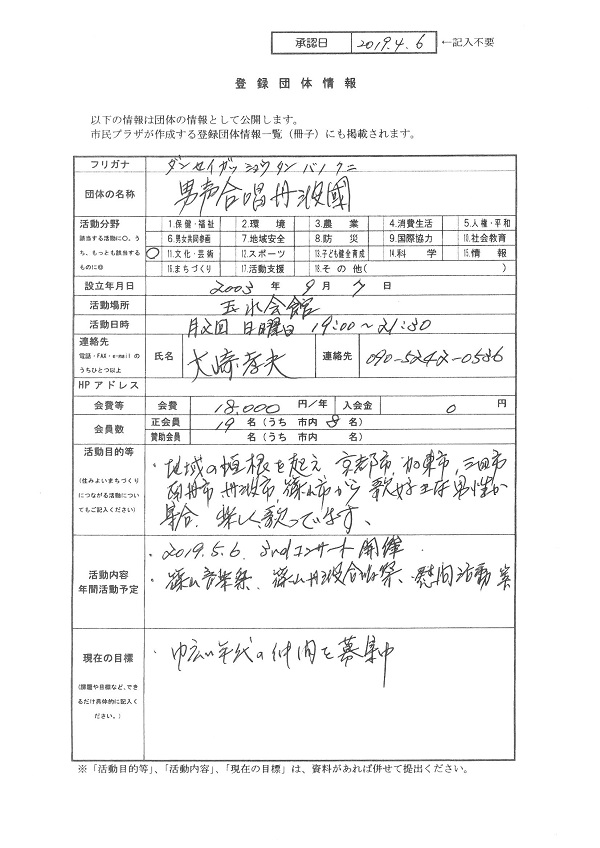 承認日 2019.4.6 ←記入不要
登録団体情報
以下の情報は団体の情報として公開します。
市民プラザが作成する登録団体情報一覧（冊子）にも掲載されます。
フリガナ ダンセイガッショウタンバノクニ
団体の名称 男声合唱丹波國
活動分野
該当する活動に○。う
ち、もっとも該当する
ものに◎
1.保健・福祉 2.環境 3.農業 4.消費生活 5.人権・平和
6.男女共同参画 7.地域安全 8.防災 9.国際協力 10.社会教育
○ 11.文化・芸術 12.スポーツ 13.子ども健全育成 14.科学 15.情報
16.まちづくり 17.活動支援 18.その他( )
設立年月日 2003年9月7日
活動場所 玉水会館
活動日時 月2回 日曜日 19:00～21:30
連絡先
電話・FAX・e-mailの
うちひとつ以上
氏名 大崎孝夫 連絡先 090-5242-0536
HPアドレス
会費等 会費 18,000 円/年 入会金 0 円
会員数 正会員 19 名（うち 市内 8 名）
賛助会員 名（うち 市内 名）
活動目的等
(住みよいまちづくり
につながる活動につい
てもご記入ください)
・地域の垣根を越え 京都市, 加東市, 三田市
丹波市, 篠山市から 歌好きな男性が
集合. 楽しく歌っています、
活動内容
年間活動予定
・2019.5.6. 3rdコンサート開催.
・篠山音楽祭. 篠山丹波合唱祭、慰問活動 等
現在の目標
(課題や目標など、でき
るだけ具体的に記入く
ださい。)
・巾広い年代の仲間を募集中
※「活動目的等」、「活動内容」、「現在の目標」は、資料があれば併せて提出ください。